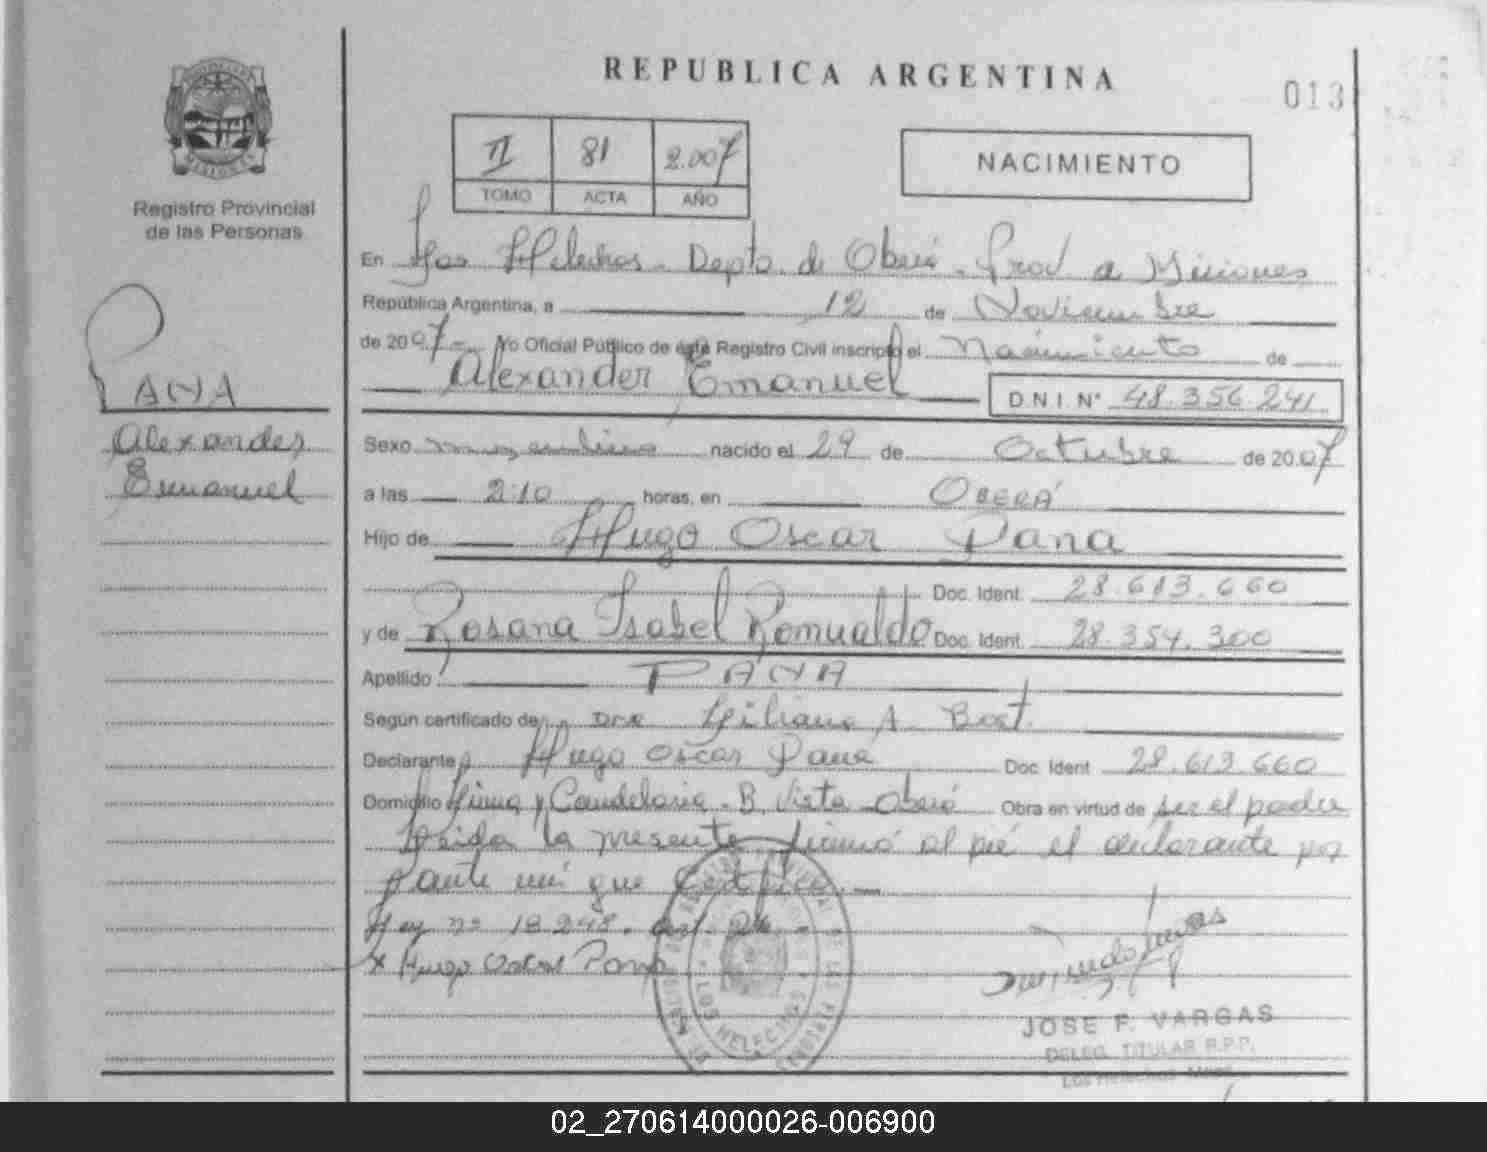 REPUBLICA ARGENTINA
013
II 81 2.007
TOMO ACTA AÑO
NACIMIENTO
Registro Provincial
de las Personas
PANA
Alexander
Emanuel
En Los Helechos - Depto. de Oberá - Prov. de Misiones
República Argentina, a 12 de Noviembre
de 2007.- Yo Oficial Público de éste Registro Civil inscripto el Nacimiento de
Alexander Emanuel D.N.I. Nº 48.356.241
Sexo masculino nacido el 29 de Octubre de 20.07
a las 2:10 horas, en OBERÁ
Hijo de Hugo Oscar Pana
Doc. Ident. 28.613.660
y de Rosana Isabel Romualdo Doc. Ident. 28.354.300
Apellido PANA
Según certificado de Dra Liliana A. Bost.
Declarante Hugo Oscar Pana Doc. Ident 28.613.660
Domicilio y Candelaria - B. Vista - Oberá Obra en virtud de ser el padre
Leida la presente firmó al pié el declarante por
ante mí que Certifico.-
Ley nº 18.248. Art. 2
x Hugo Oscar Pana
LOS HELECHOS
JOSE F. VARGAS
DELEG. TITULAR R.P.P.
Los Helechos - Mnes.
02_270614000026-006900